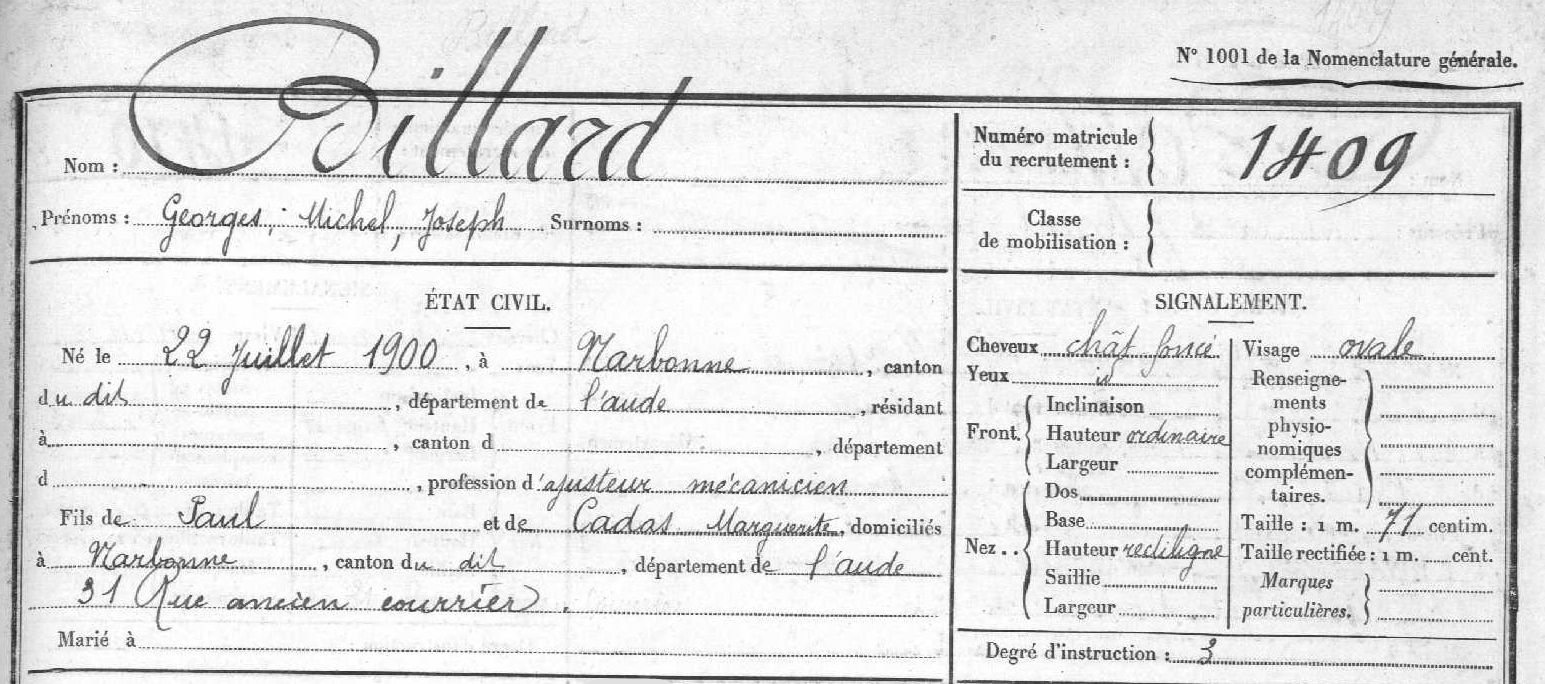 N° 1001 de la Nomenclature générale.
Nom : Billard
Prénoms : Georges, Michel, Joseph Surnoms :
ÉTAT CIVIL.
Né le 22 Juillet 1900, à Narbonne, canton
du dit, département de l'aude, résidant
à, canton d, département
d, profession d'ajusteur mécanicien
Fils de Paul et de Cadas Marguerite, domiciliés
à Narbonne, canton du dit, département de l'aude
31 Rue ancien courrier.
Marié à
Numéro matricule
du recrutement : 1409
Classe
de mobilisation :
SIGNALEMENT.
Cheveux chât foncé
Yeux id
Front.
Inclinaison
Hauteur ordinaire
Largeur
Nez..
Dos
Base
Hauteur rectiligne
Saillie
Largeur
Visage ovale
Renseigne-
ments
physio-
nomiques
complémen-
taires.
Taille : 1 m. 71 centim.
Taille rectifiée : 1 m. cent.
Marques
particulières.
Degré d'instruction : 3